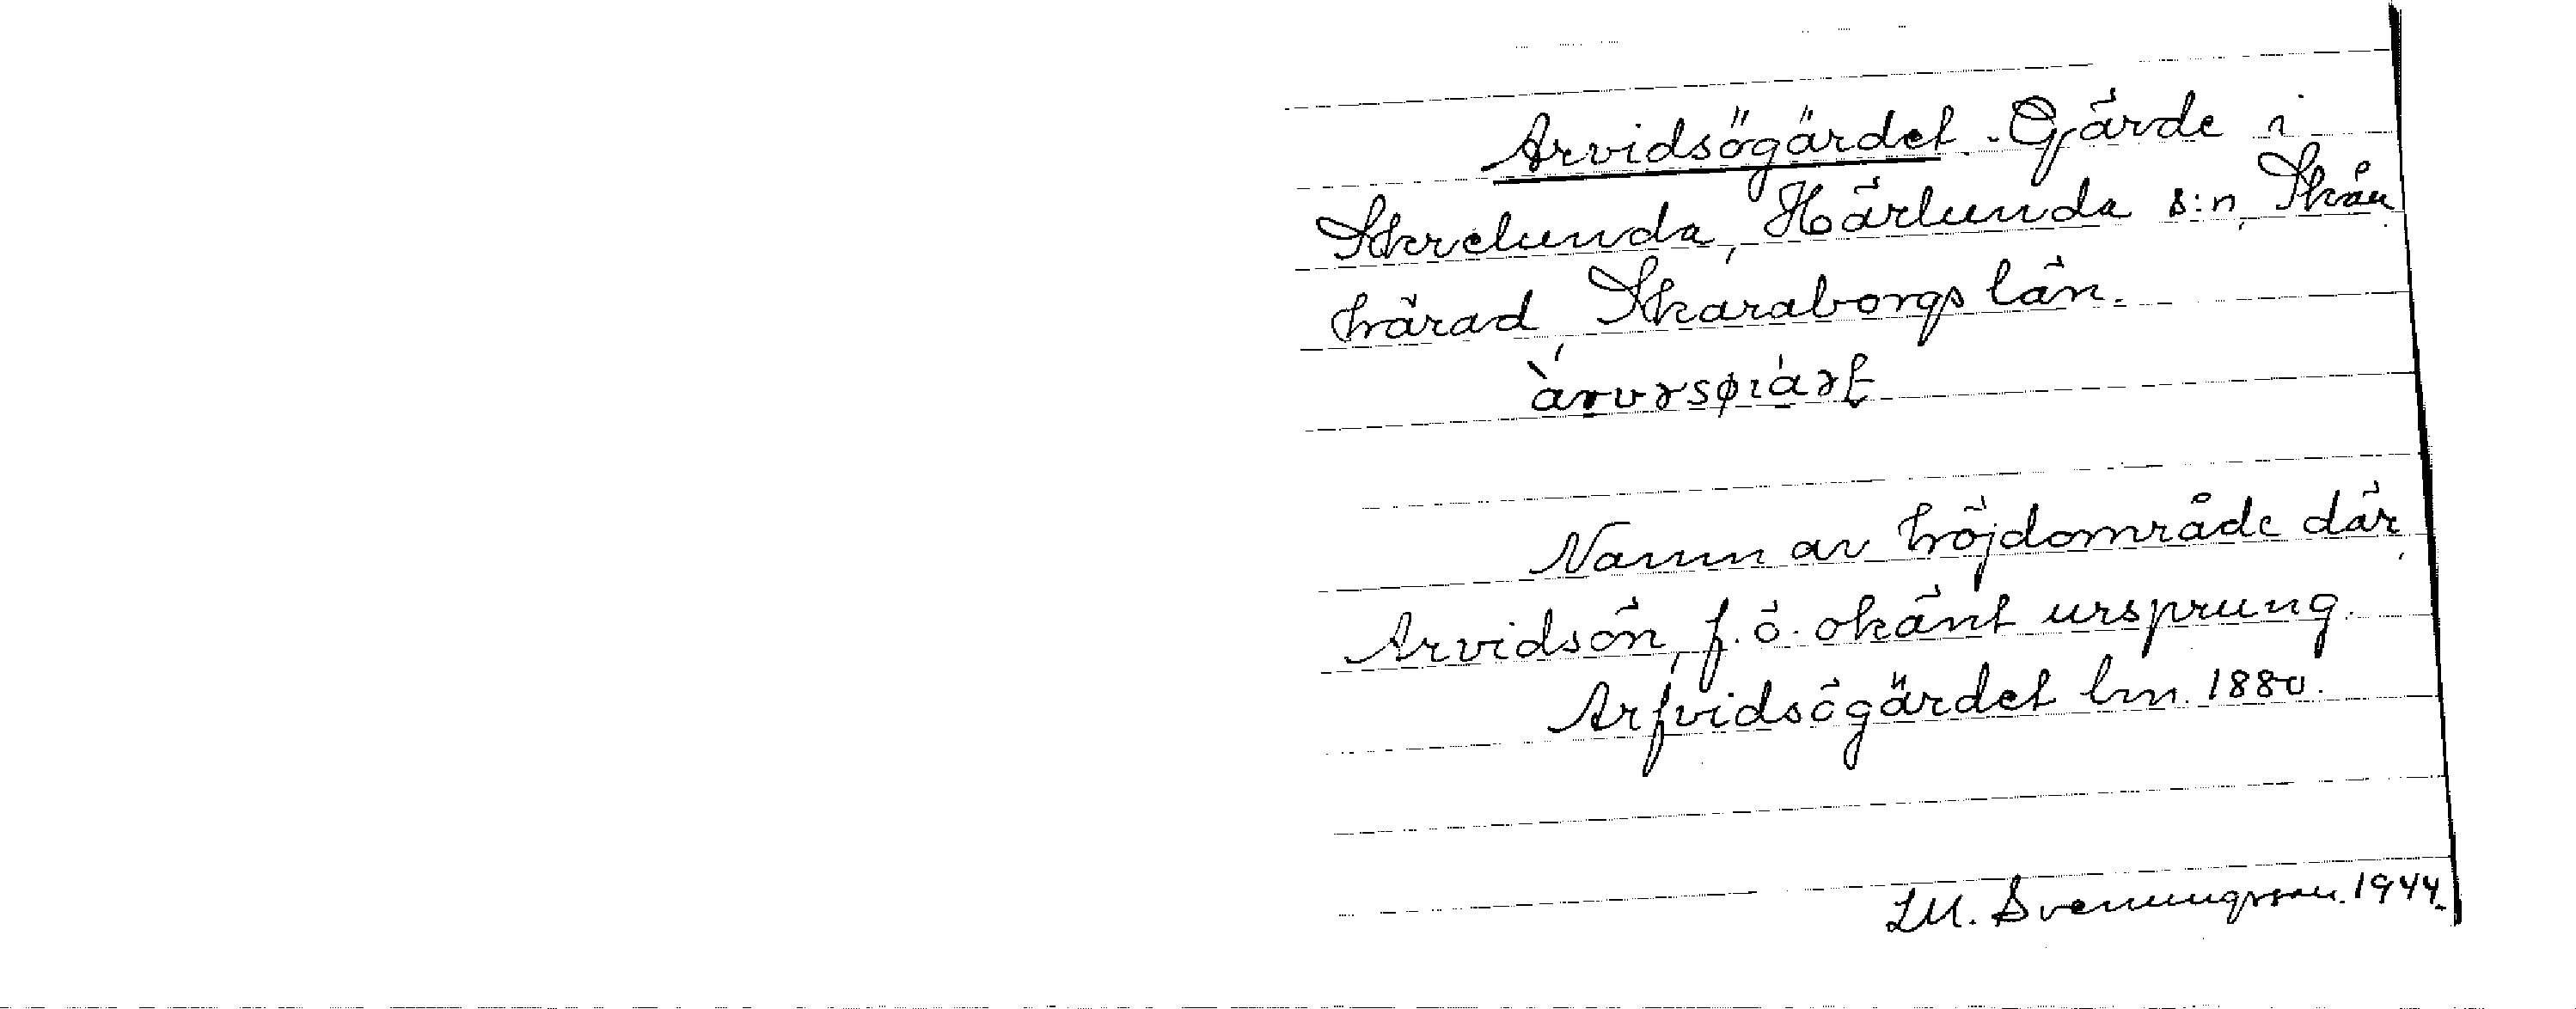 Arvidsögärdet. Gärde i
Skrelunda, Härlunda s:n, Skån
härad, Skaraborgs län.
Namn av höjdområde där,
Arvidsön, f. ö. okänt ursprung.
Arfvidsögärdet lm. 1880.
LM. Svenungsson. 1944.